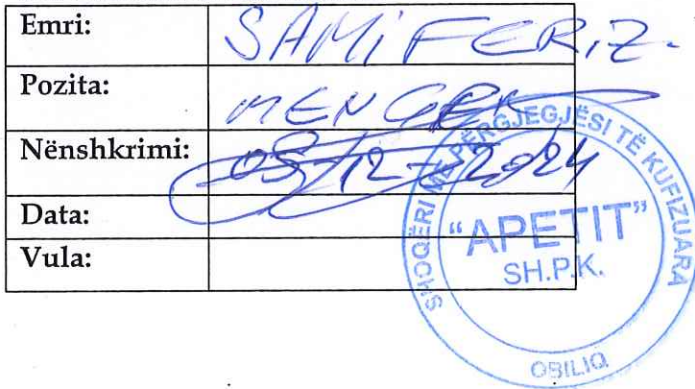 Emri: SAMi FERiZ.
Pozita: MENGER
Nënshkrimi: 05/12-2024
Data:
Vula:
SHOQËRI ME PËRGJEGJËSI TË KUFIZUARA
"APETIT"
SH.P.K.
OBILIQ